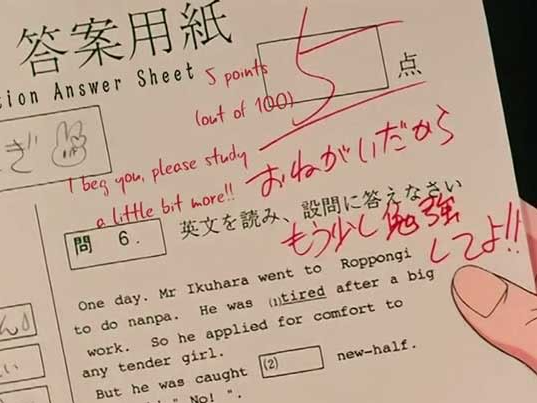 答案用紙
tion Answer Sheet
5 points
(out of 100)
5 点
ぎ
I beg you, please study
a little bit more!!
おねがいだから
もう少し勉強
してよ!!
問 6.
英文を読み、設問に答えなさい
One day. Mr Ikuhara went to Roppongi
to do nanpa. He was (1)tired after a big
work. So he applied for comfort to
any tender girl.
But he was caught (2) new-half.
" No! ".